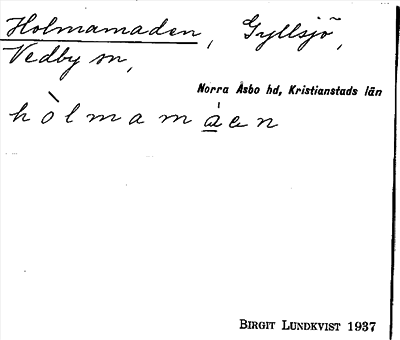 Holmamaden, Gyllsjö,
Vedby sn,
Norra Åsbo hd, Kristianstads län
hòlmamáen
BIRGIT LUNDKVIST 1937